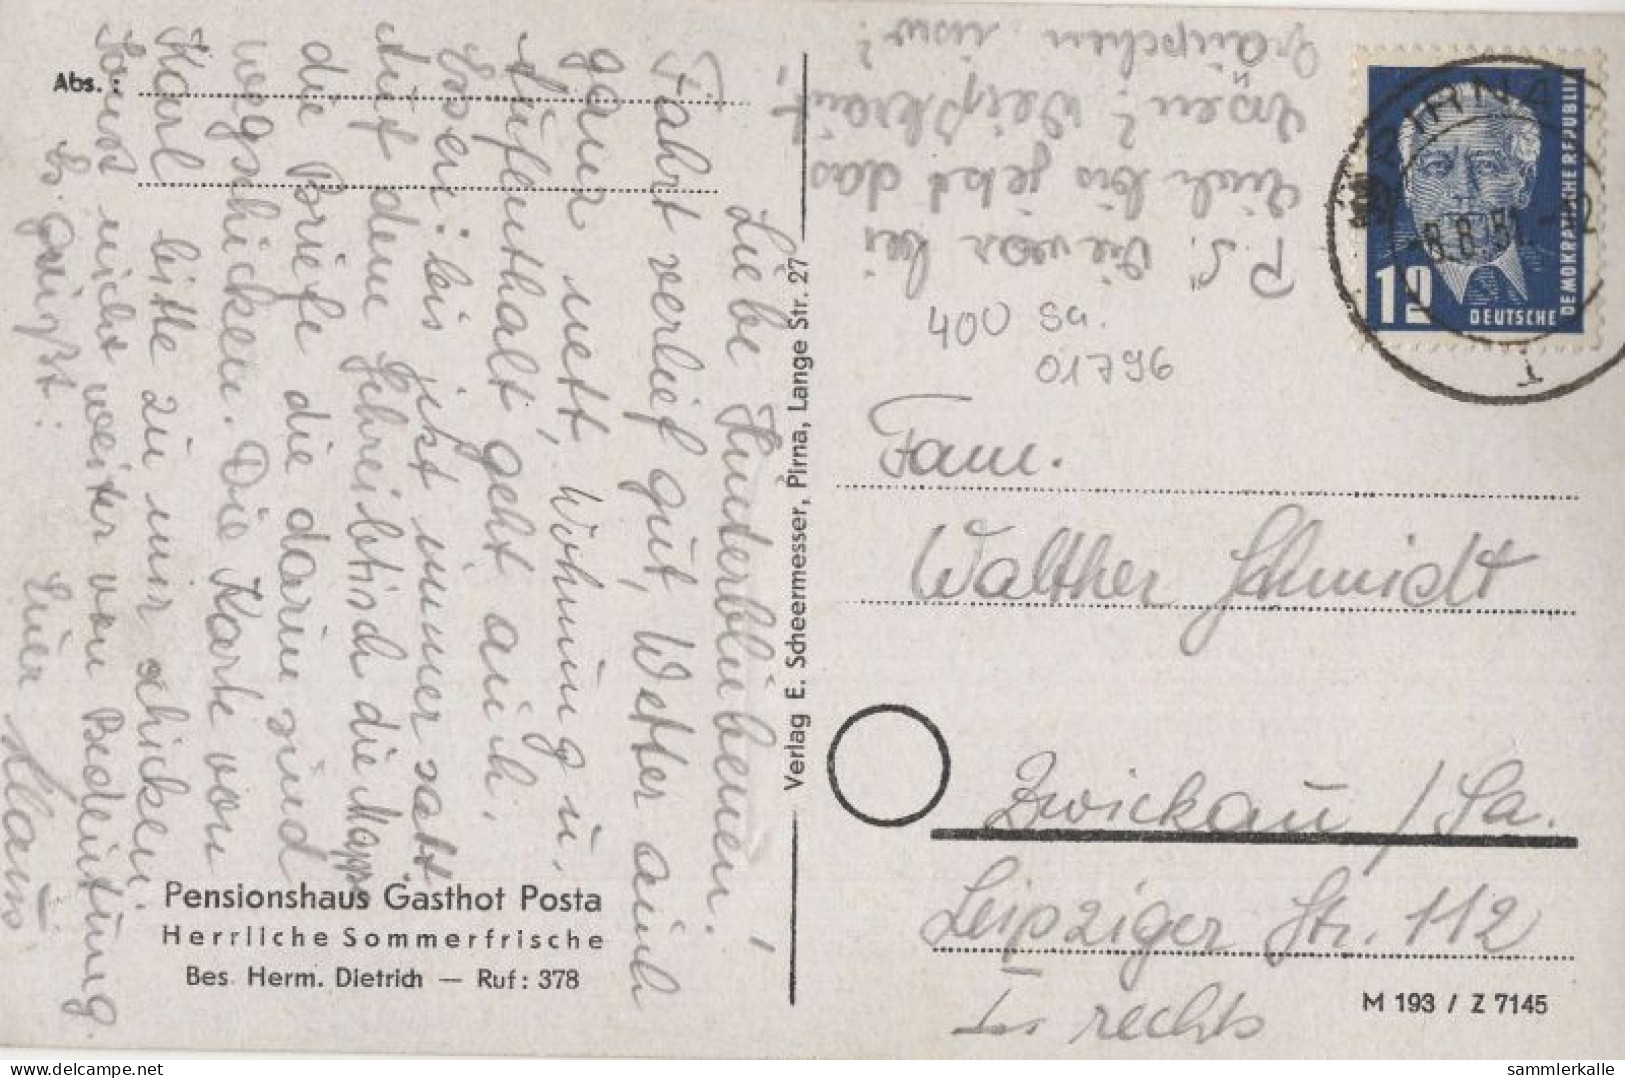 Abs.:
Liebe Hinterbliebenen!
Fahrt verlief gut, Wetter auch
ganz nett, Wohnung u.
Aufenthalt geht auch.
Essen: bis jetzt immer satt.
Auf dem Schreibtisch die Mappe
die Briefe die darin sind
wegschicken. Die Karte von
Karl bitte zu mir schicken.
Sonst nichts weiter von Bedeutung.
Es grüßt:
Euer Klaus
P.S. Wie war bei
Euch bis jetzt das
Essen? Weißkraut,
Gräupchen usw?
400 Sa.
01796
PIRNA
-8.8.51.
1
12
DEUTSCHE
DEMOKRATISCHE REPUBLIK
Fam.
Walther Schmidt
Zwickau / Sa.
Leipziger Str. 112
I. rechts
Verlag E. Scheermesser, Pirna, Lange Str. 27
Pensionshaus Gasthof Posta
Herrliche Sommerfrische
Bes. Herm. Dietrich — Ruf: 378
M 193 / Z 7145
www.delcampe.net
sammlerkalle